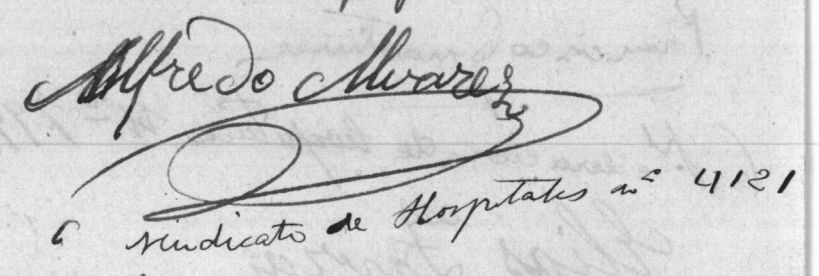 Alfredo Alvarez
Sindicato de Hospitales nº 4121